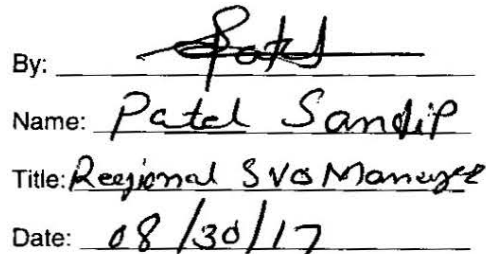 By: Patel
Name: Patel Sandip
Title: Regional SVG Manager
Date: 08/30/17